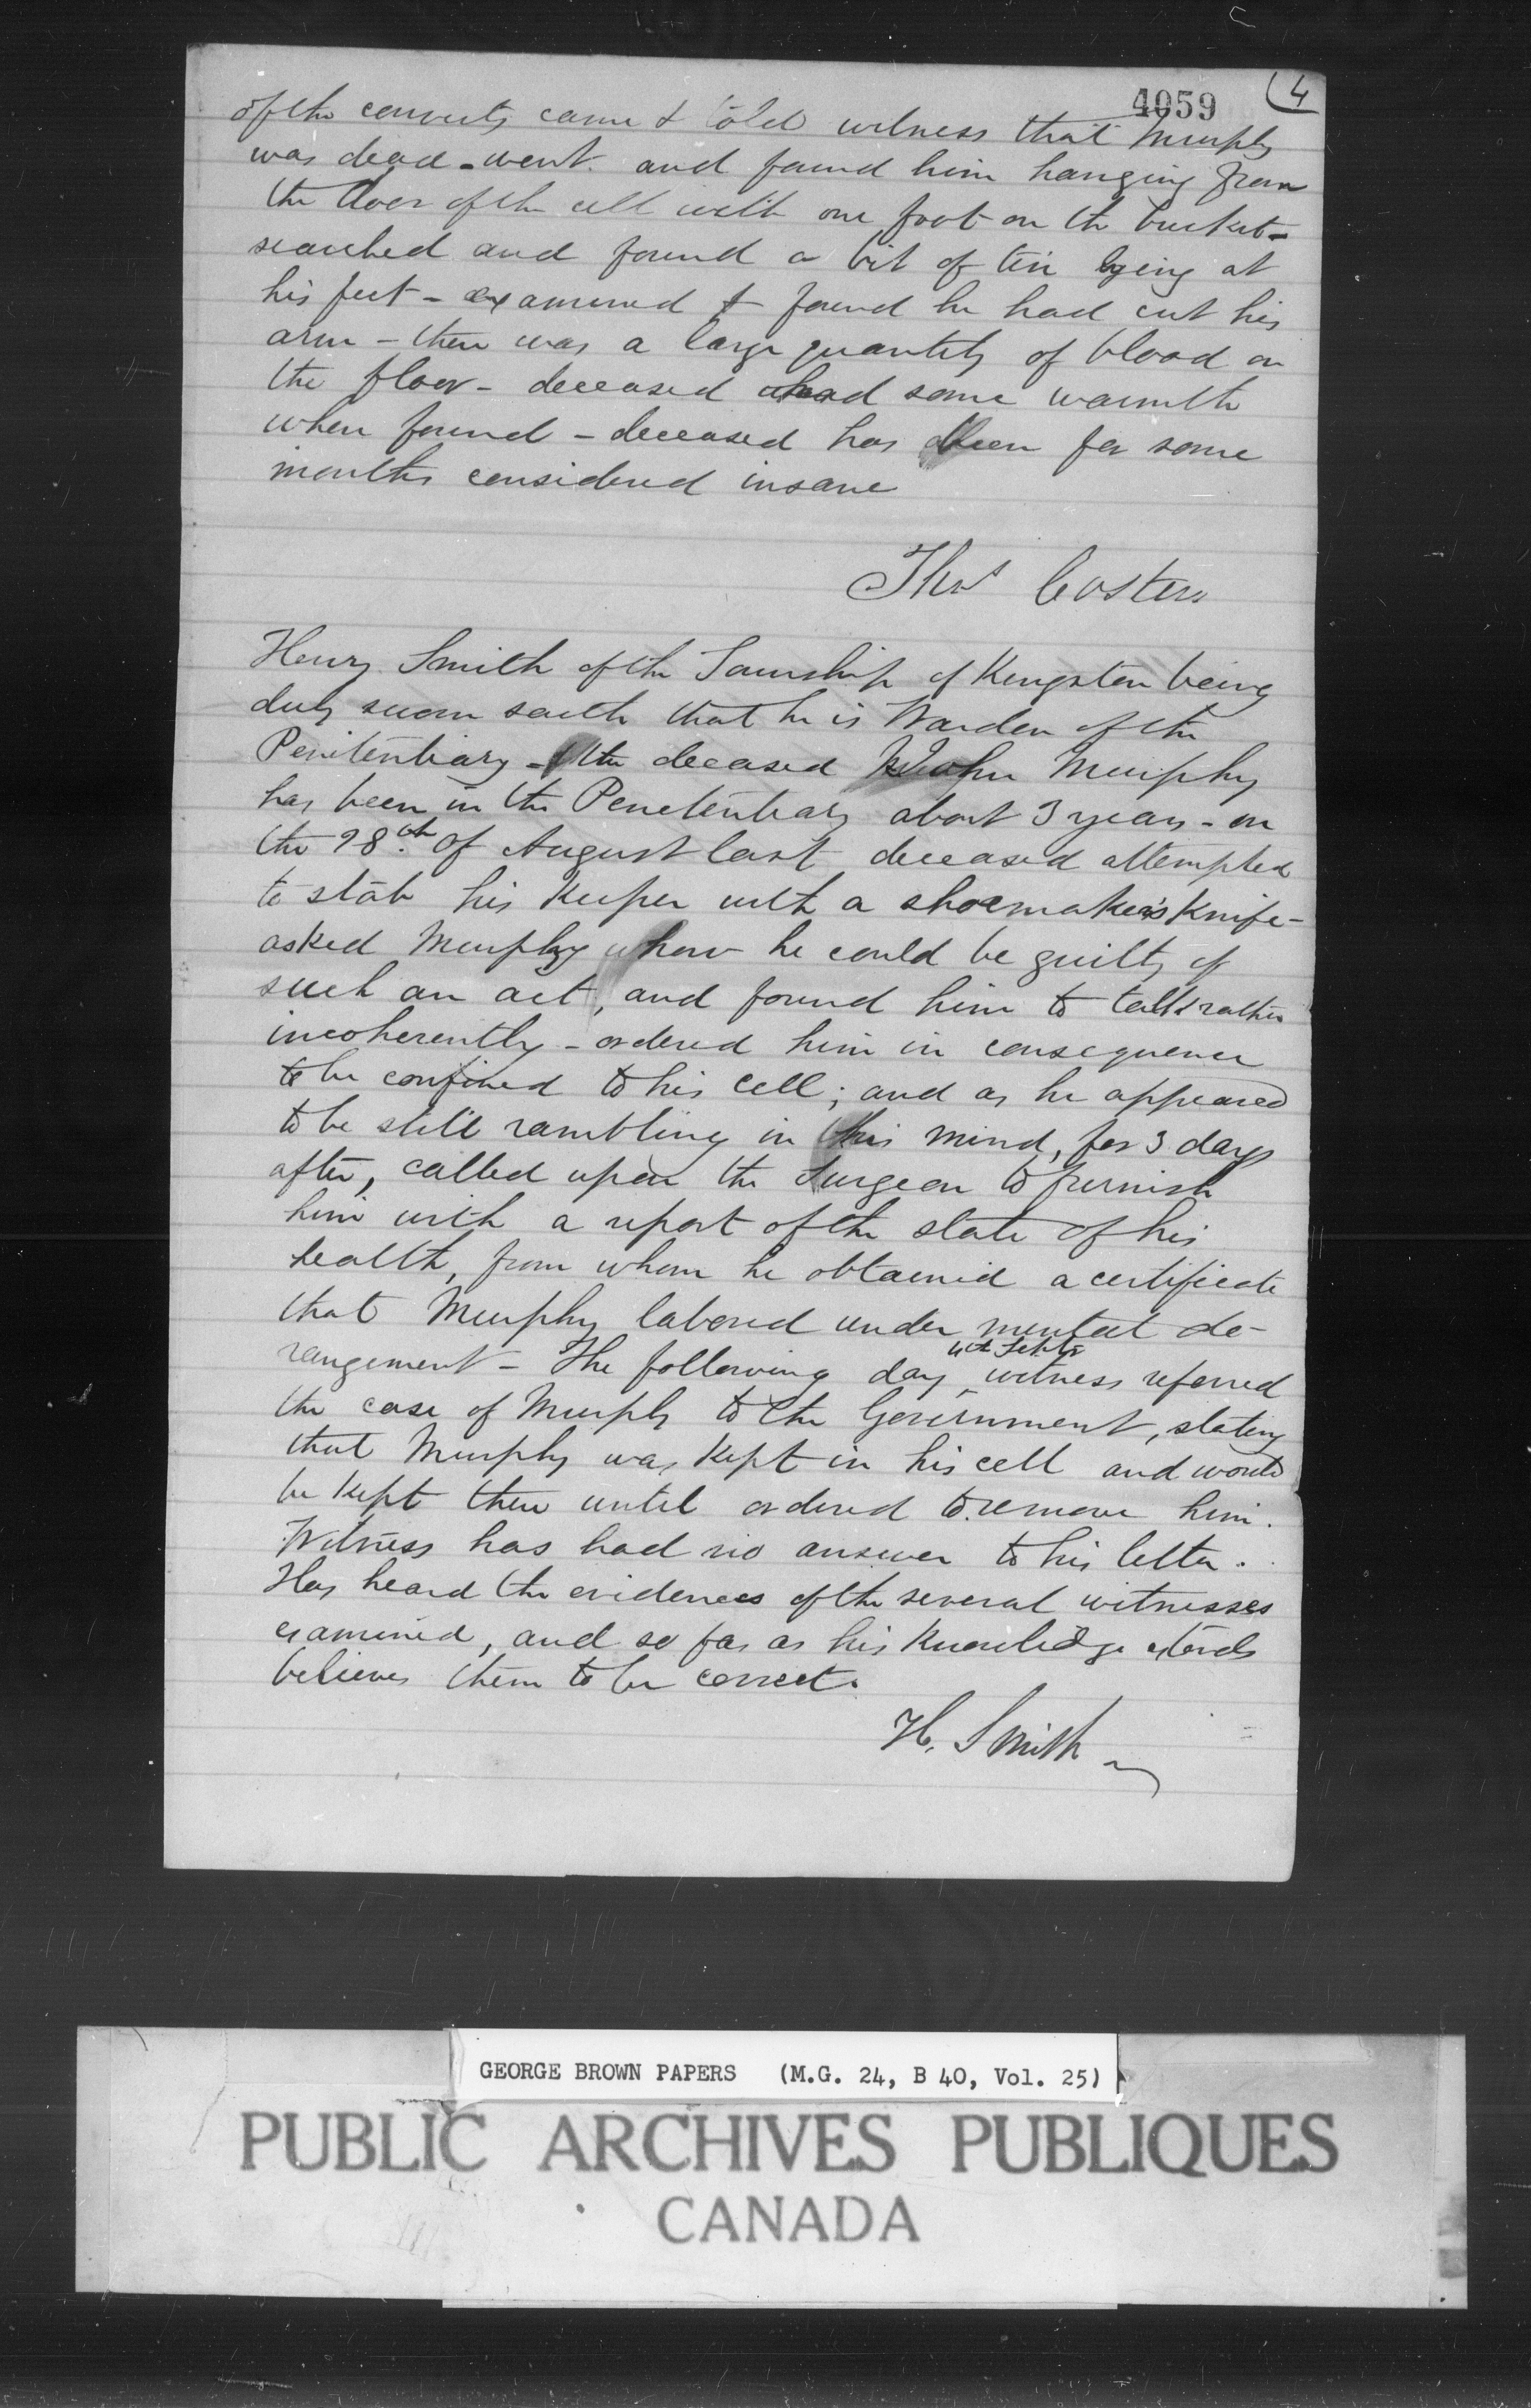 4059
4
of the convicts came & told witness that Murphy
was dead - went and found him hanging from
the door of the cell with one foot on the bucket -
searched and found a bit of tin lying at
his feet - examined & found he had cut his
arm - there was a large quantity of blood on
the floor - deceased had some warmth
when found - deceased has been for some
months considered insane
Thos Costen
Henry Smith of the Township of Kingston being
duly sworn saith that he is Warden of the
Penitentiary - the deceased John Murphy
has been in the Penetentiary about 3 years - on
the 28th of August last deceased attempted
to stab his Keeper with a shoemaker's Knife -
asked Murphy how he could be guilty of
such an act, and found him to talk rather
incoherently - ordered him in consequence
to be confined to his cell; and as he appeared
to be still rambling in his mind, for 3 days
after, called upon the Surgeon to furnish
him with a report of the state of his
health, from whom he obtained a certificate
that Murphy labored under mental de-
4th Septr
rangement - The following day, witness referred
the case of Murphy to the Government, stating
that Murphy was Kept in his cell and would
be Kept there until ordered to remove him.
Witness has had no answer to his letter.
Has heard the evidences of the several witnesses
examined, and so far as his Knowledge extends
believes them to be correct.
H. Smith
GEORGE BROWN PAPERS (M.G. 24, B 40, Vol. 25)
PUBLIC ARCHIVES PUBLIQUES
CANADA